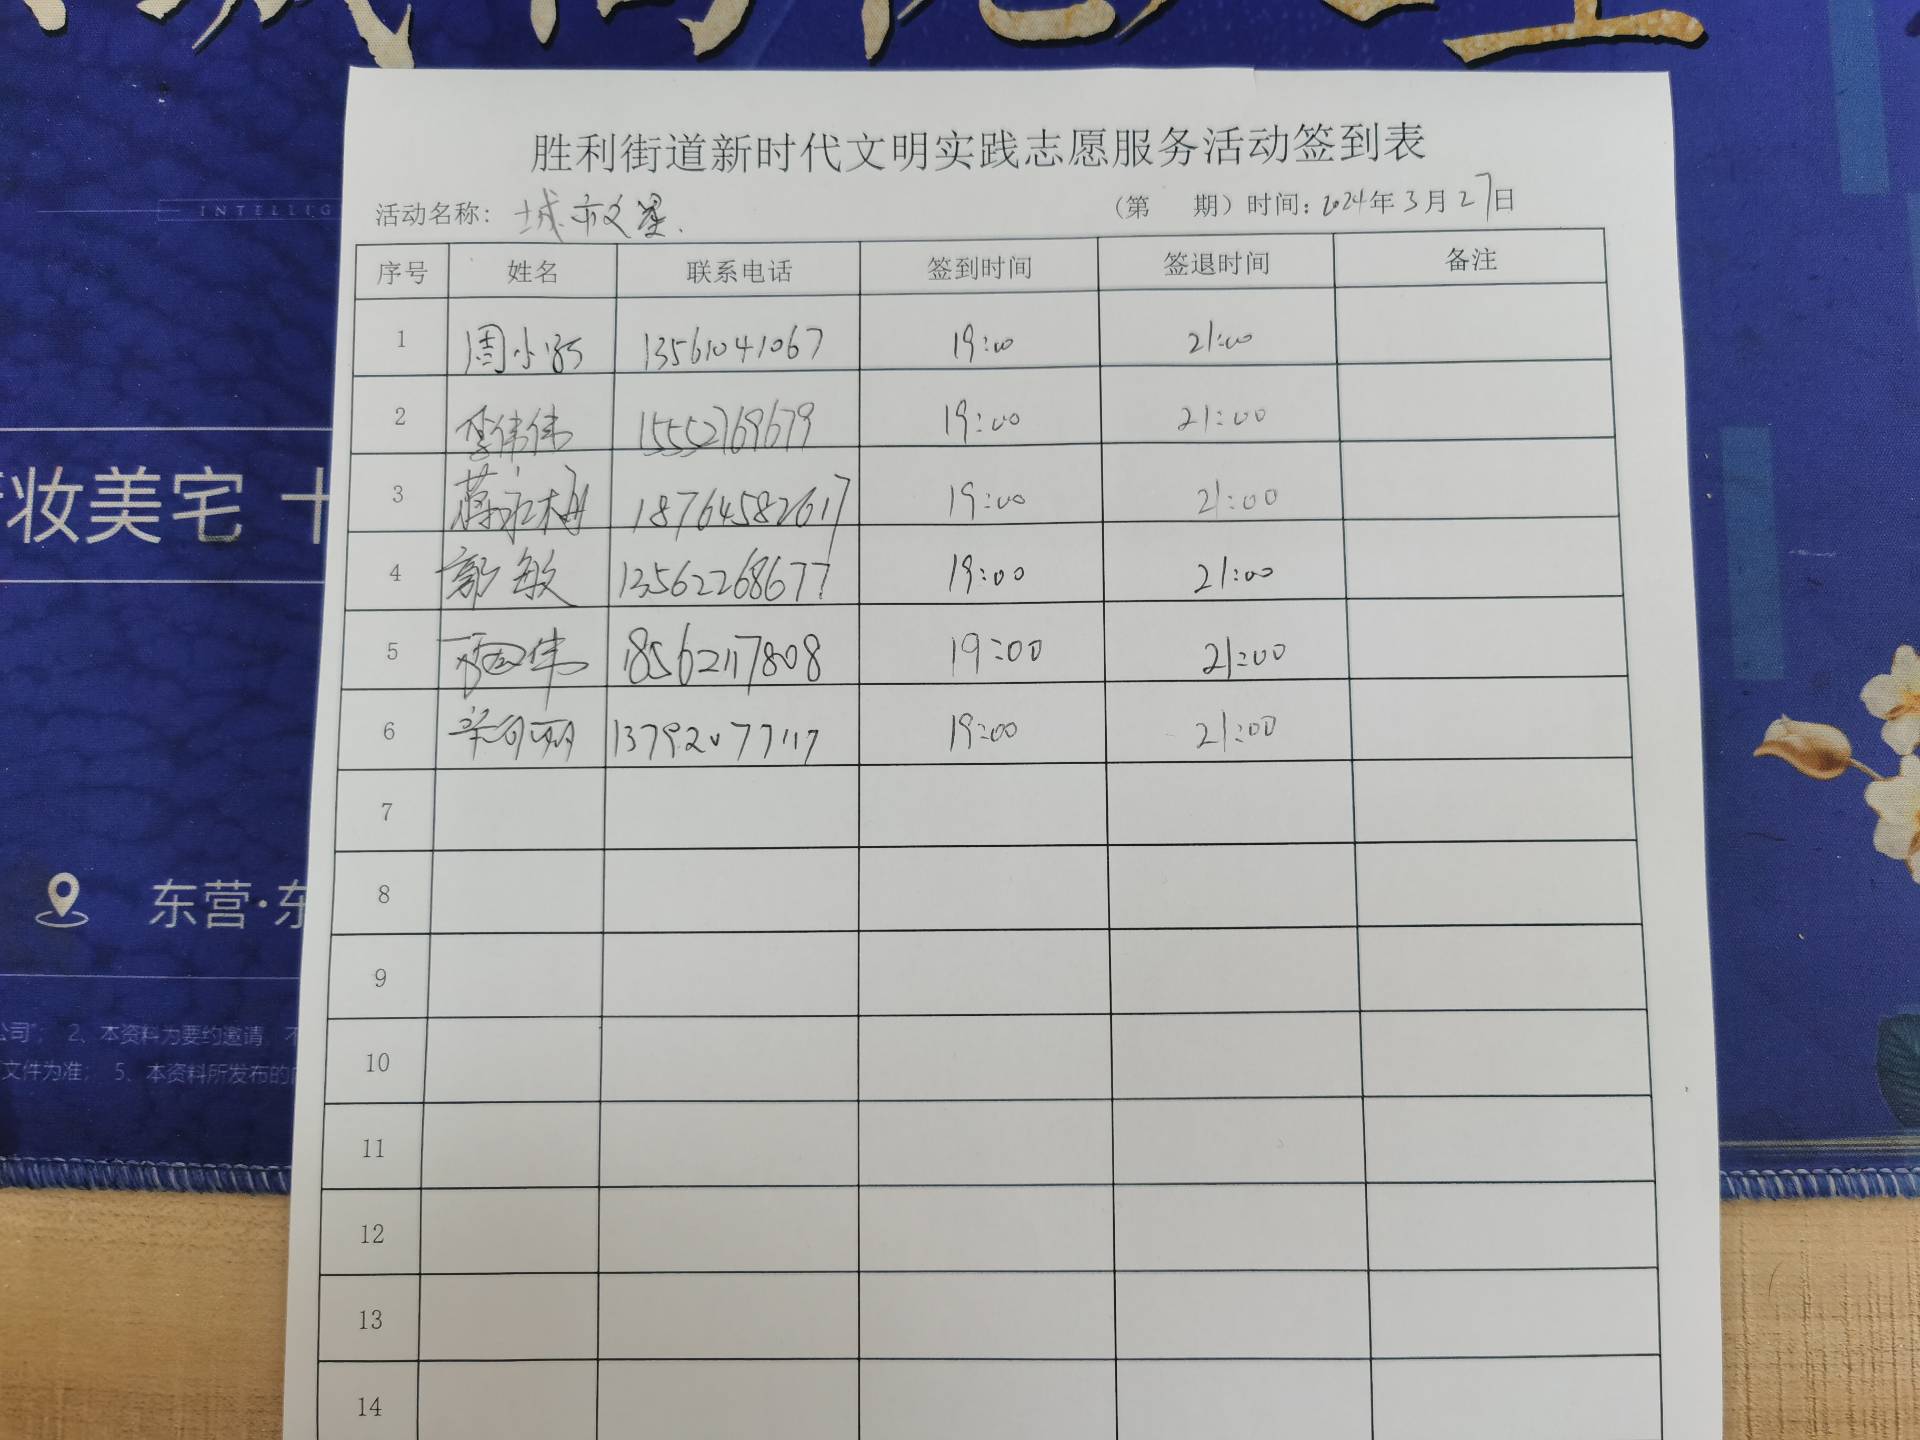 INTELLIG
妆美宅 十
东营·东
公司"; 2、本资料为要约邀请,不
文件为准; 5、本资料所发布的
胜利街道新时代文明实践志愿服务活动签到表
活动名称: 城市文星. (第 期)时间:2024年3月27日
序号 姓名 联系电话 签到时间 签退时间 备注
1 周小 13561041067 19:00 21:00
2 李伟伟 15552769679 19:00 21:00
3 蒋永梅 18764582617 19:00 21:00
4 郭敏 13562268677 19:00 21:00
5 伟 18562117808 19:00 21:00
6 丽 13792077117 19:00 21:00
7
8
9
10
11
12
13
14